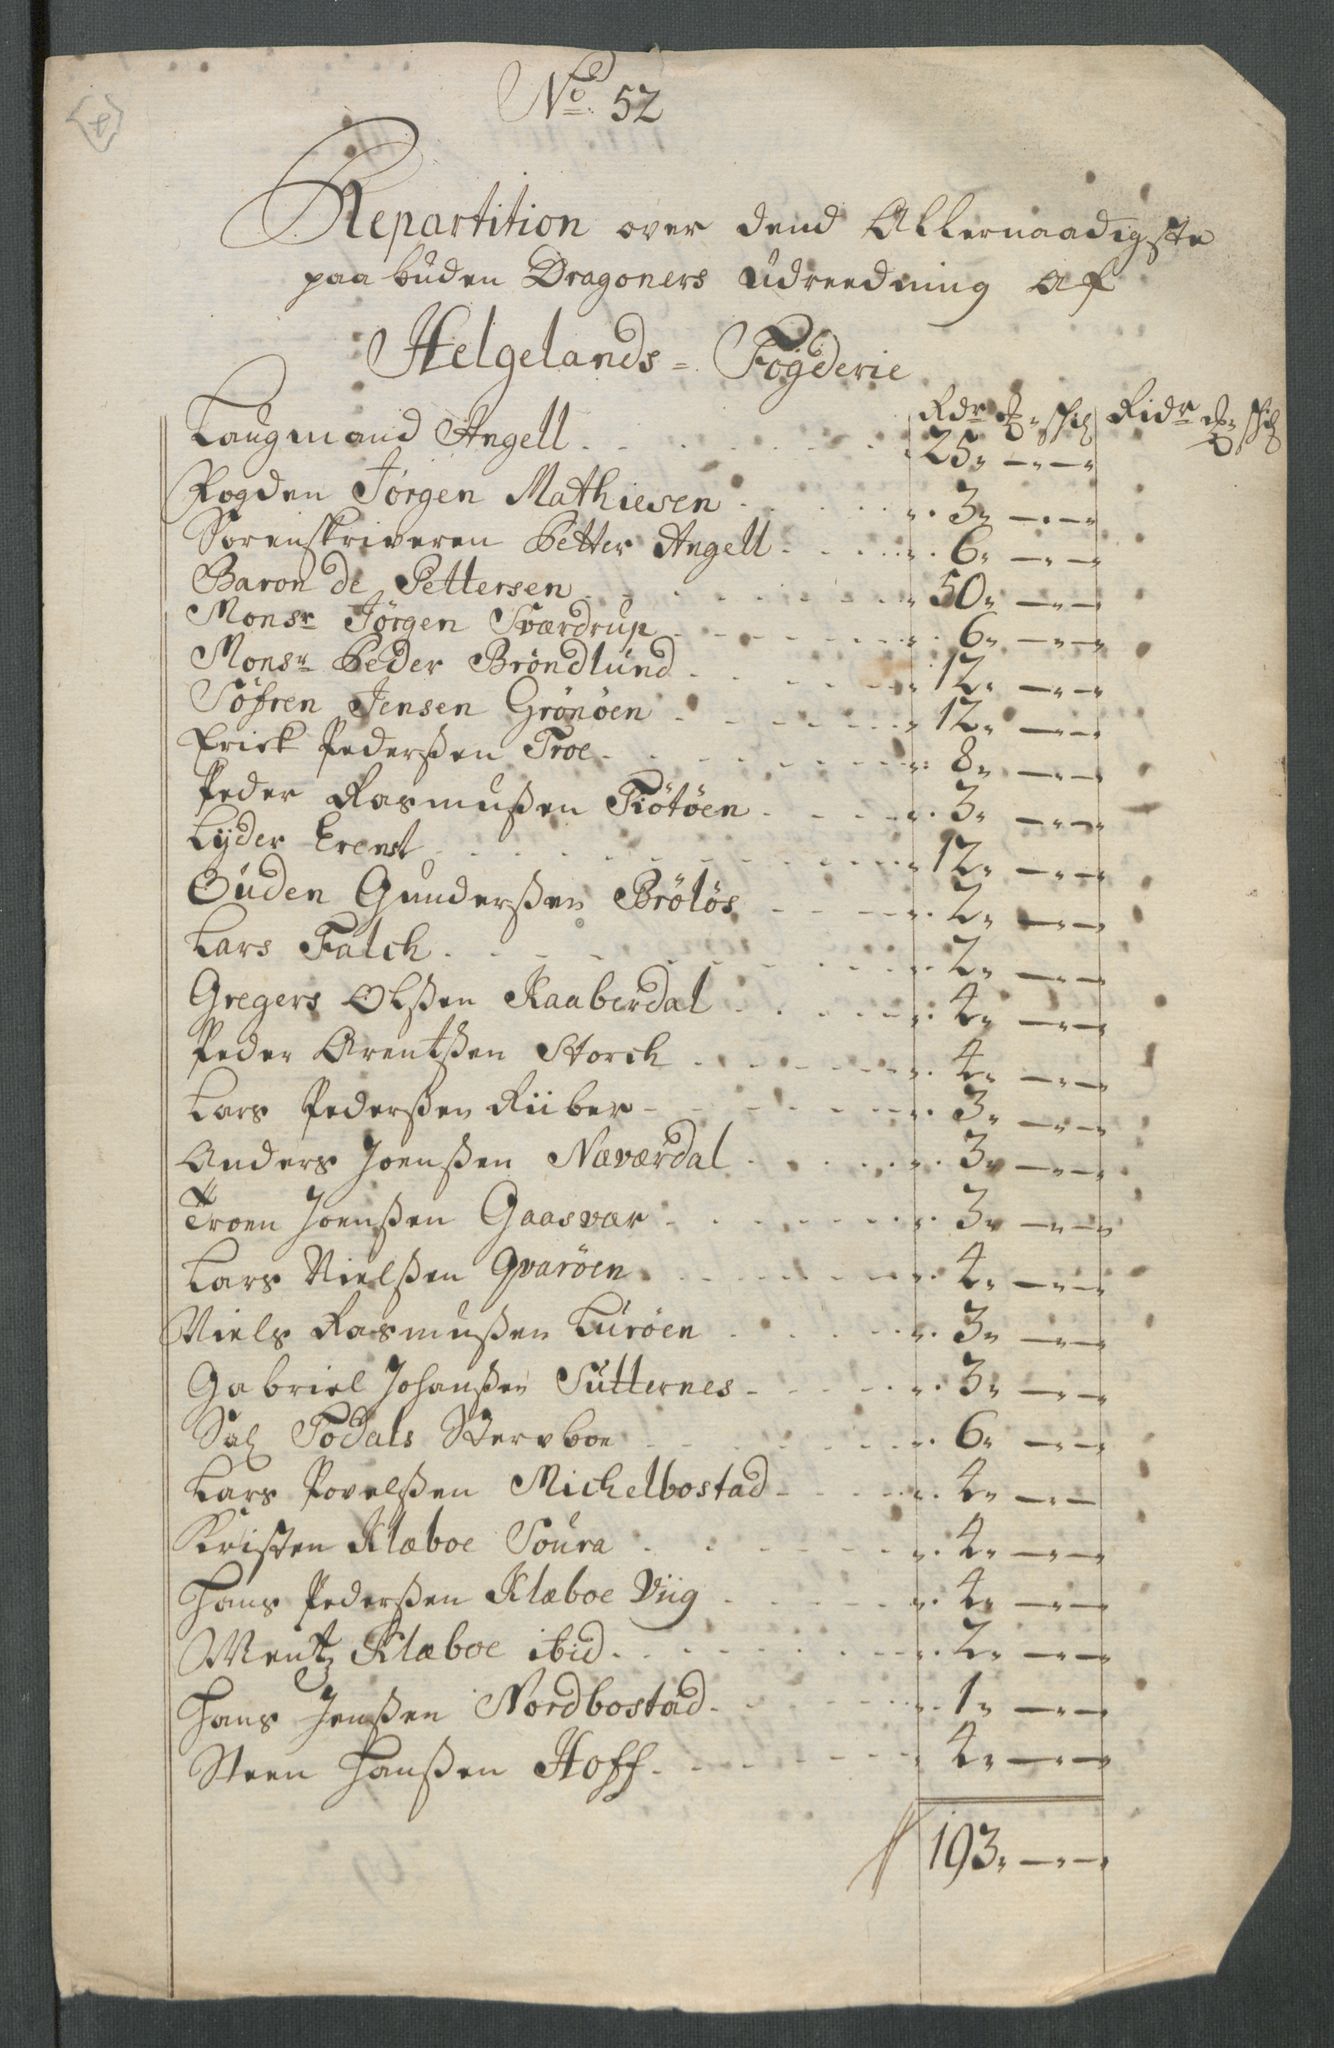 No. 52
Repartition over dend Allernaadigste
paabuden Dragoners Udreedning af
Helgelands = Fogderie
Rdr ß Ridr ß
Laugmand Angell 25
Fogden Jørgen Mathiesen 3
Sorenskriveren Petter Angell 6
Baron de Pettersen 50
Monsr Jørgen Sværdrup 6
Monsr Peder Brøndlund 12
Søfren Jensen Grønøen 12
Erick Pederßen Troe 8
Peder Rasmußen Tiøtøen 3
Lyder Erenst 12
Ouden Gunderßen Brøløs 2
Lars Falch 2
Gregers Olßen Raaberdal 4
Peder Arentßen Storch 4
Lars Pederßen Riiber 3
Anders Joenßen Næværdal 3
Troen Joenßen Gaasvær 3
Lars Nielßen Qvarøen 4
Niels Rasmußen Lurøen 3
Gabriel Johanßen Sutternes 3
Sal Todals Sterboe 6
Lars Povelßen Michelbostad 4
Kristen Klæboe Soura 4
Hans Pederßen Klæboe Viig 4
Mentz Klæboe ibid 2
Hans Jenßen Nordbostad 1
Steen Hanßen Hoff 4
193